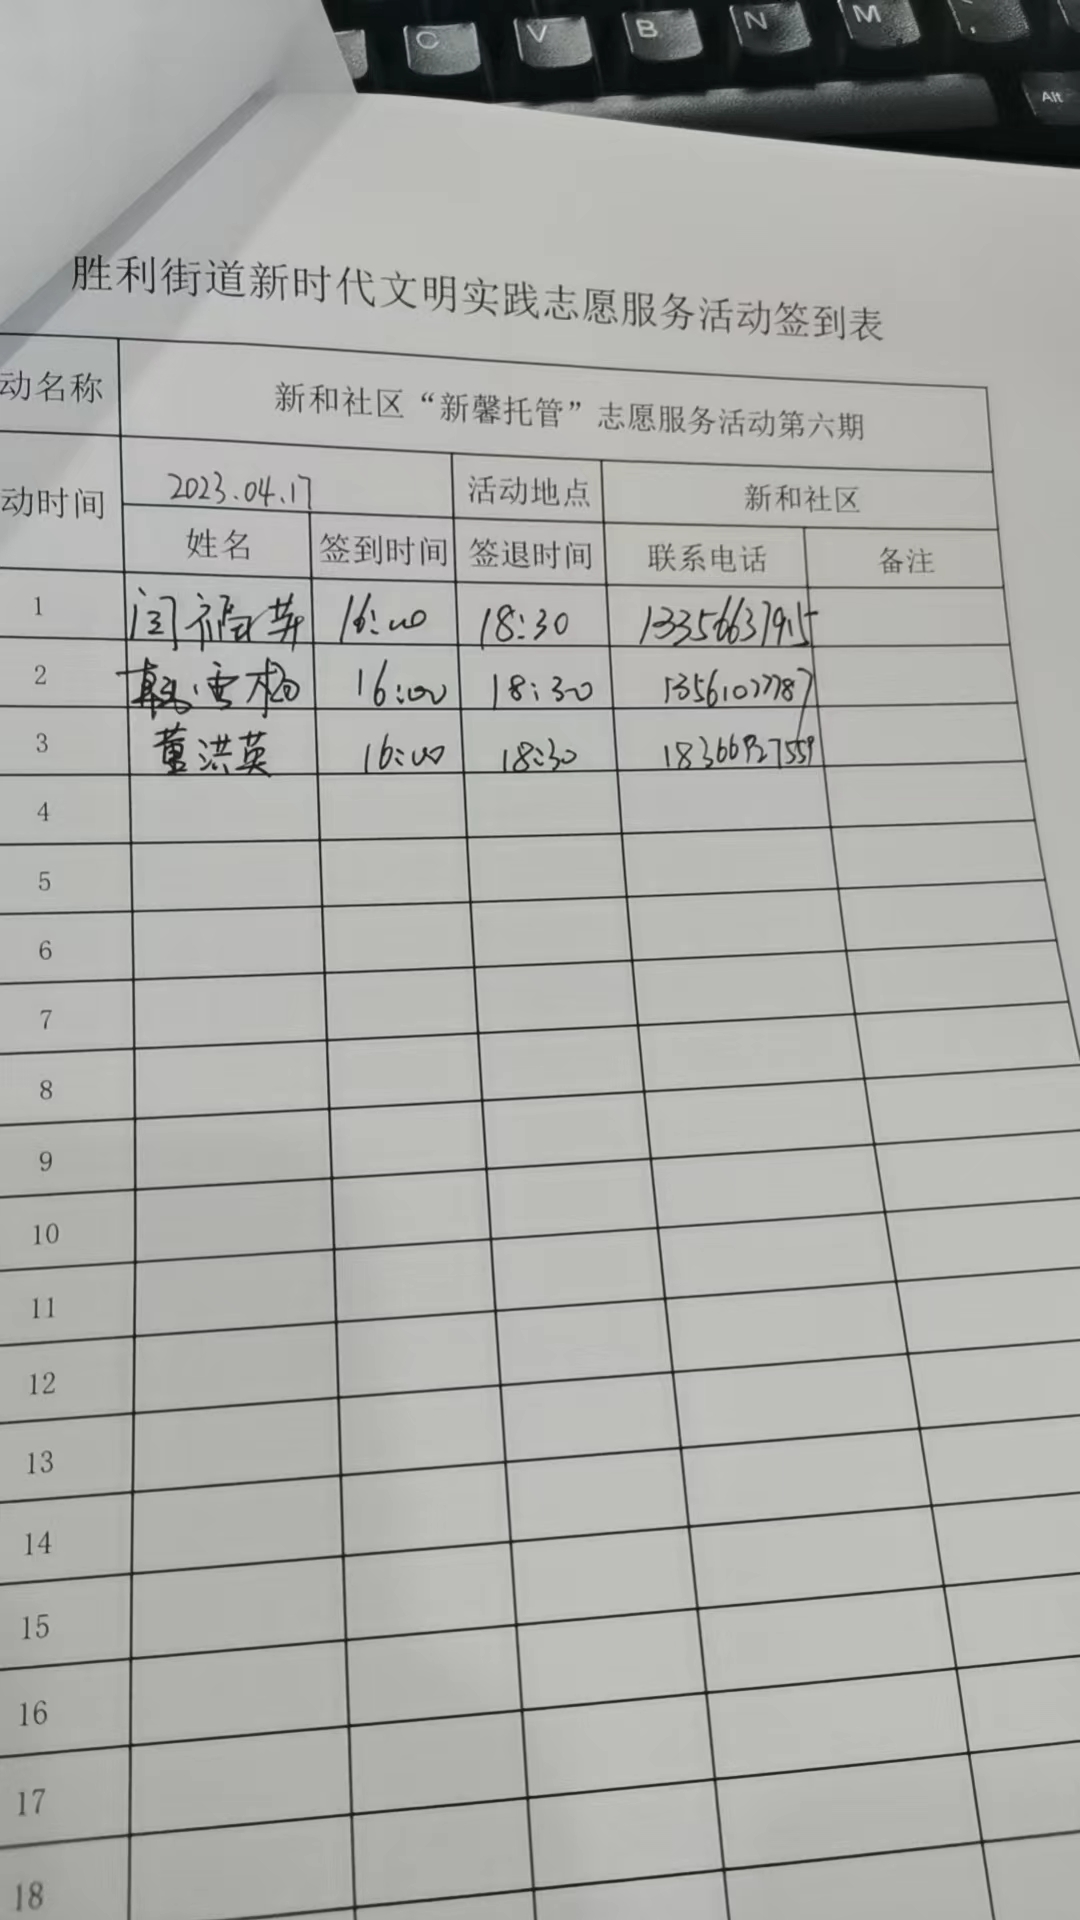 C V B N M ,
Alt
胜利街道新时代文明实践志愿服务活动签到表
动名称 新和社区“新馨托管”志愿服务活动第六期
动时间 2023.04.17 活动地点 新和社区
姓名 签到时间 签退时间 联系电话 备注
1 闫福英 16:00 18:30 13356637915
2 16:00 18:30 13561077787
3 董洪英 16:00 18:30 18366927559
4
5
6
7
8
9
10
11
12
13
14
15
16
17
18